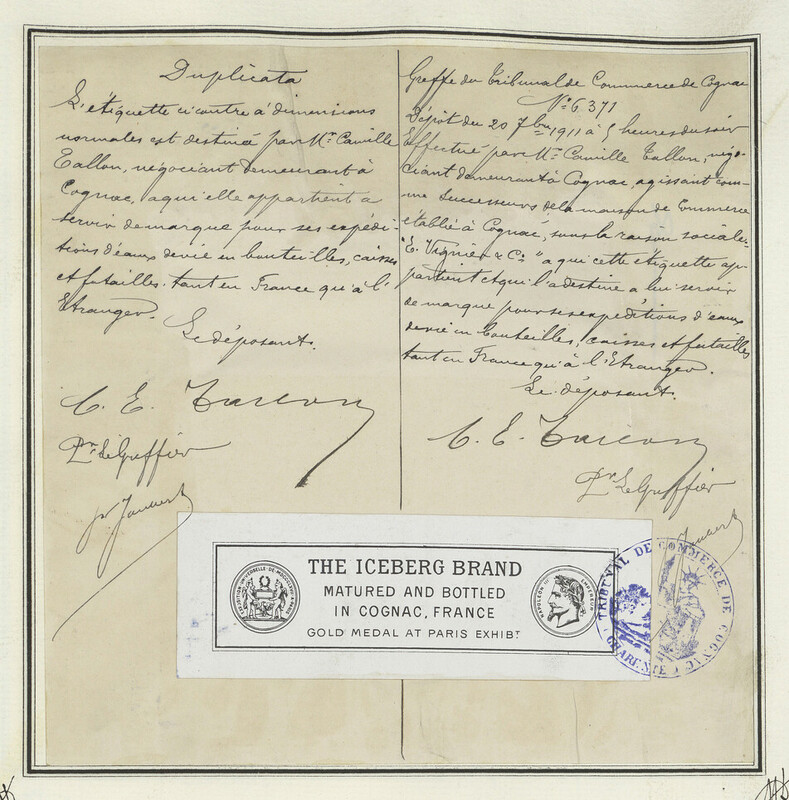 Duplicata
L'étiquette ci contre à dimensions
normales est destinée par Mr. Camille
Tallon, négociant demeurant à
Cognac, a qui elle appartient a
servir de marque pour ses expédi-
tions d'eaux devie en bouteilles, caisses
et futailles, tant en France qu'à l'
Etranger.
Le déposant.
C. E. Tallon
Pr. Le Greffier
Greffe du Tribunal de Commerce de Cognac
No. 6371
Dépôt du 20 7bre 1911 à 5 heures du soir
Effectué par Mr. Camille Tallon, négo-
ciant demeurant à Cognac, agissant com-
me Successeurs de la maison de Commerce
etablié à Cognac, sous la raison sociale
"E. Vignier & Co." a qui cette étiquette ap-
partient et qui l'a destine a lui servir
de marque pour ses expéditions d'eaux
devie en bouteilles, caisses et futailles
tant en France qu'à l'Etranger.
Le déposant.
C. E. Tallon
Pr Le Greffier
THE ICEBERG BRAND
MATURED AND BOTTLED
IN COGNAC, FRANCE
GOLD MEDAL AT PARIS EXHIBT
NAPOLEON III EMPEREUR
TRIBUNAL DE COMMERCE DE COGNAC
CHARENTE